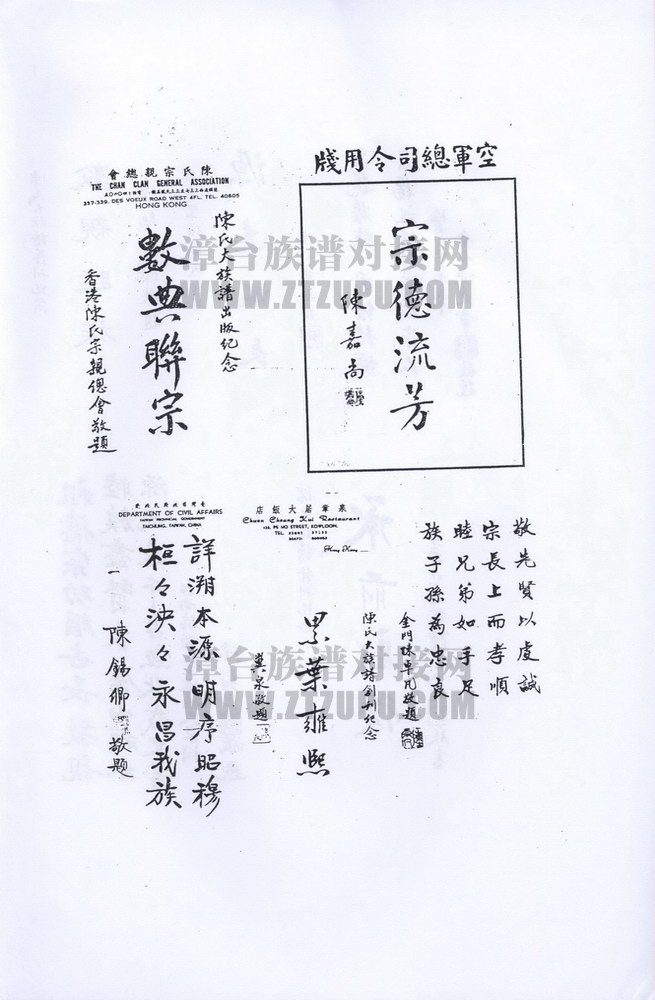 空軍總司令用牋
宗德流芳
陳嘉尚
陳氏宗親總會
THE CHAN CLAN GENERAL ASSOCIATION
337-339, DES VOEUX ROAD WEST 4FL, TEL. 40605
HONG KONG
陳氏大族譜出版紀念
數典聯宗
香港陳氏宗親總會敬題
敬先賢以虔誠
宗長上而孝順
睦兄弟如手足
族子孫為忠良
金門陳卓凡敬題
泉章居大飯店
Chuen Cheung Kui Restaurant
HONG KONG
陳氏大族譜創刊紀念
累葉雍熙
冀泉敬題
臺灣省政府民政廳
DEPARTMENT OF CIVIL AFFAIRS
TAIWAN PROVINCIAL GOVERNMENT
TAICHUNG, TAIWAN, CHINA
詳溯本源明序昭穆
桓々泱々永昌我族
陳錫卿敬題
漳台族谱对接网
WWW.ZTZUPU.COM
漳台族谱对接网
WWW.ZTZUPU.COM